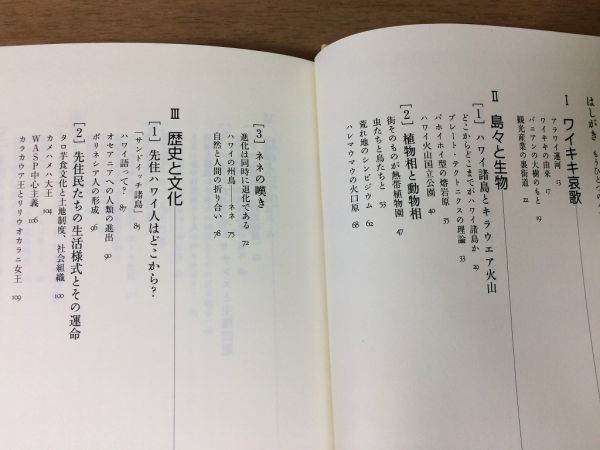 はしがき
Ⅰ ワイキキ哀歌
アラワイ運河 13
ワイキキの由来 17
バニアンの大樹のもと 19
観光産業の裏街道 22
Ⅱ 島々と生物
[1] ハワイ諸島とキラウエア火山
どこからどこまでがハワイ諸島か 29
プレート・テクトニクスの理論 33
パホイホイ型の熔岩原 35
ハワイ火山国立公園 40
[2] 植物相と動物相
街そのものが熱帯植物園 47
虫たちと鳥たちと 53
荒れ地のシンビジウム 62
ハレマウマウの火口原 68
[3] ネネの嘆き
進化は同時に退化である 72
ハワイの州鳥――ネネ 75
自然と人間の折り合い 78
Ⅲ 歴史と文化
[1] 先住ハワイ人はどこから?
「サンドイッチ諸島」 85
ハワイ語って? 87
オセアニアへの人類の進出 90
ポリネシア人の形成 96
[2] 先住民たちの生活様式とその運命
タロ芋食文化と土地制度、社会組織 100
カメハメハ大王 104
WASP中心主義 106
カラカウア王とリリウオカラニ女王 109